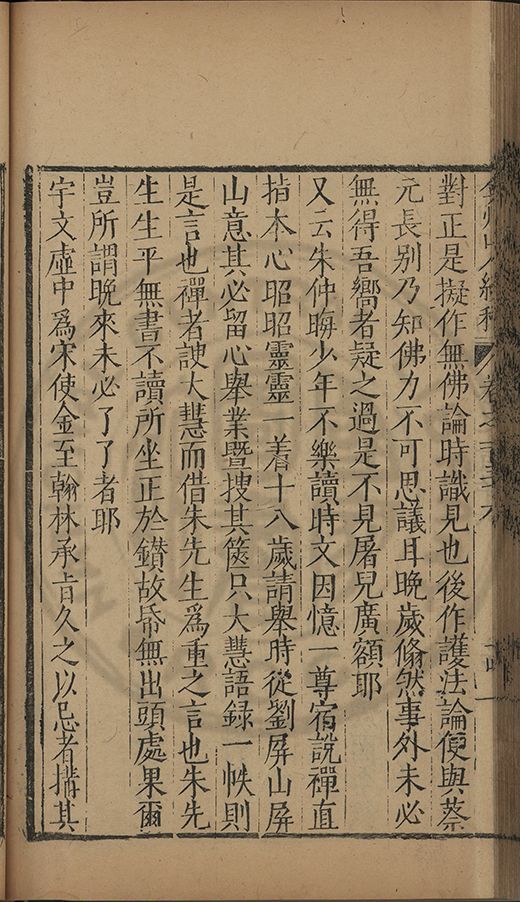 對正是擬作無佛論時識見也後作護法論便與蔡
元長别乃知佛力不可思議耳晚歲翛然事外未必
無得吾嚮者疑之過是不見屠兒廣額耶
又云朱仲晦少年不樂讀時文因憶一尊宿說禪直
指本心昭昭靈靈一着十八歲請舉時從劉屏山屏
山意其必留心舉業暨搜其篋只大慧語録一帙則
是言也禪者諛大慧而借朱先生爲重之言也朱先
生生平無書不讀所坐正於鑚故帋無出頭處果爾
豈所謂晚來未必了了者耶
宇文虛中爲宋使金至翰林承旨久之以忌者搆其